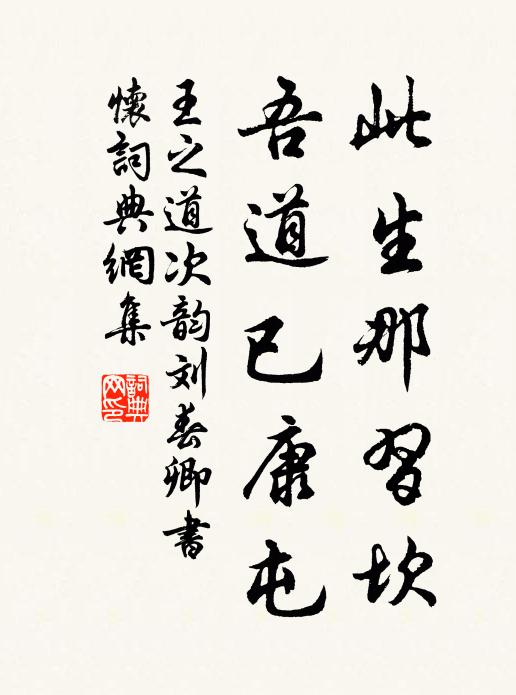 此生那習坎
吾道已康屯
王之道次韵刘春卿書
懷詞典網集
詞典
网印